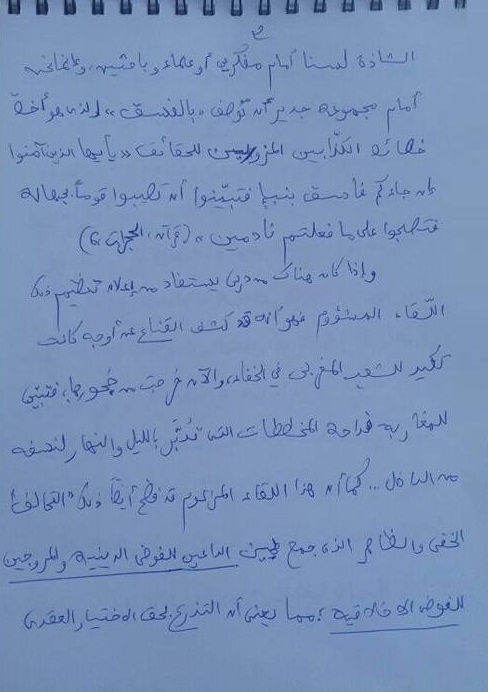 الشاذة لسنا أمام مفكرين أو علماء وباحثين، وإنما نحن
أمام مجموعة جدير أن توصف «بالفسق» الذي هو أخص
خصائص الكذابين المزورين للحقائق «يا أيها الذين آمنوا
إن جاءكم فاسق بنبإ فتبينوا أن تصيبوا قوما بجهالة
فتصبحوا على ما فعلتم نادمين» (قرآن، الحجرات 6)
وإذا كان هناك من درس يستفاد من إعلان تنظيم ذلك
اللقاء المشؤوم فهو أنه قد كشف القناع عن أوجه كانت
تكيد للشعب المغربي في الخفاء، والآن خرجت من جحورها، فتبين
للمغاربة فداحة المخططات التي تدبر بالليل والنهار لنسفه
من الداخل... كما أن هذا اللقاء المزعوم قد فضح أيضا ذلك "التحالف"
الخفي والظاهر الذي جمع بين الداعين للفوضى الدينية والمروجين
للفوضى الاخلاقية؛ مما يعني أن التذرع بحق الاختيار العقدي